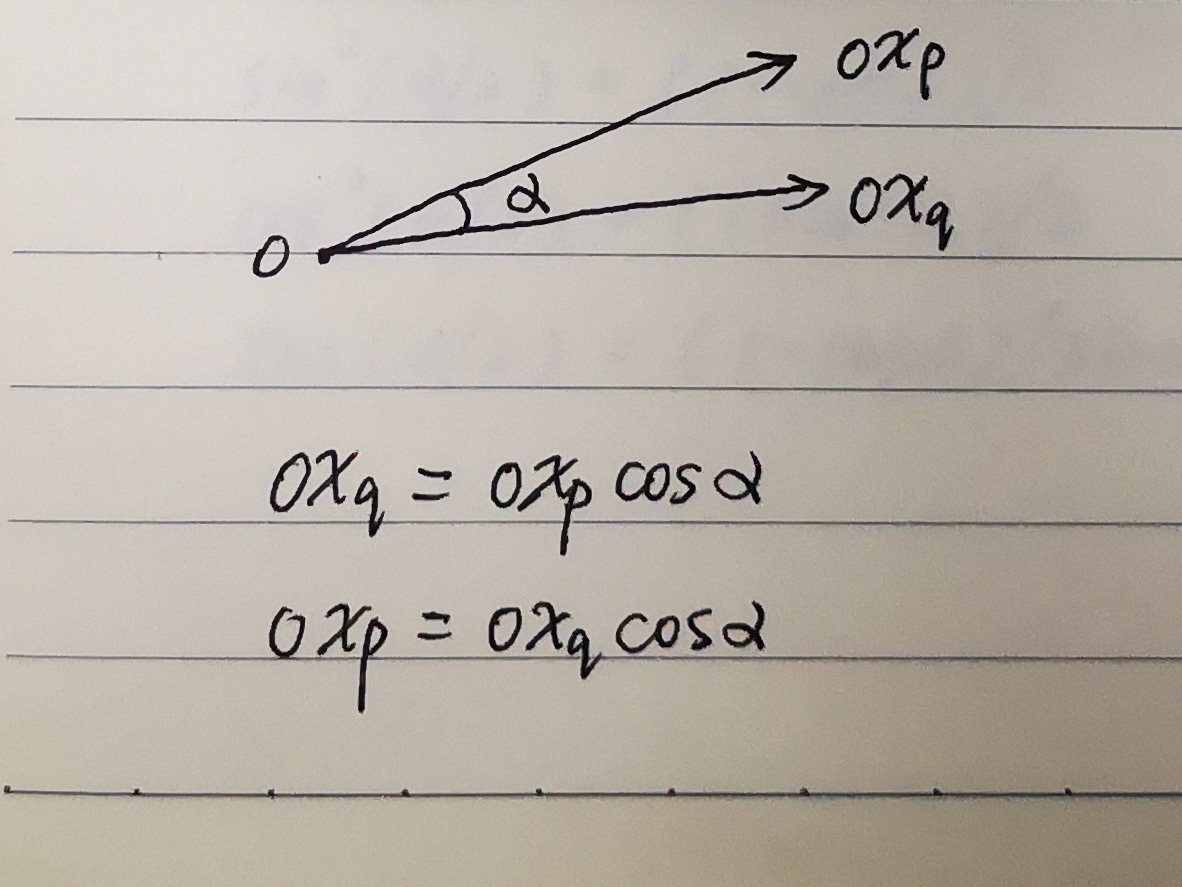 OXp
α
OXq
O
OXq = OXp cos α
OXp = OXq cos α